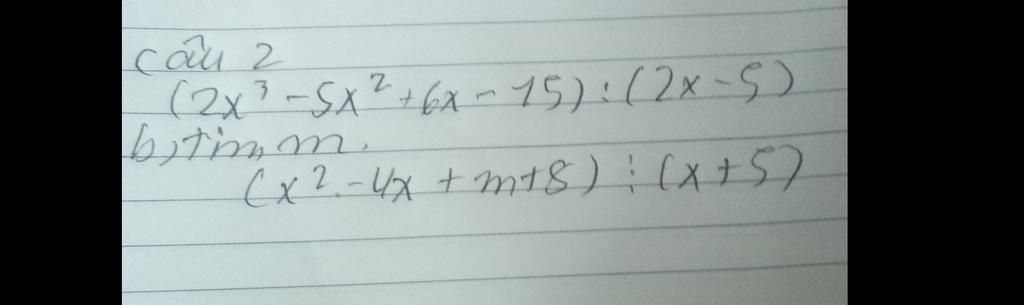 câu 2
(2x³ - 5x² + 6x - 15) : (2x - 5)
b, tìm m.
(x² - 4x + m + 8) ⋮ (x + 5)